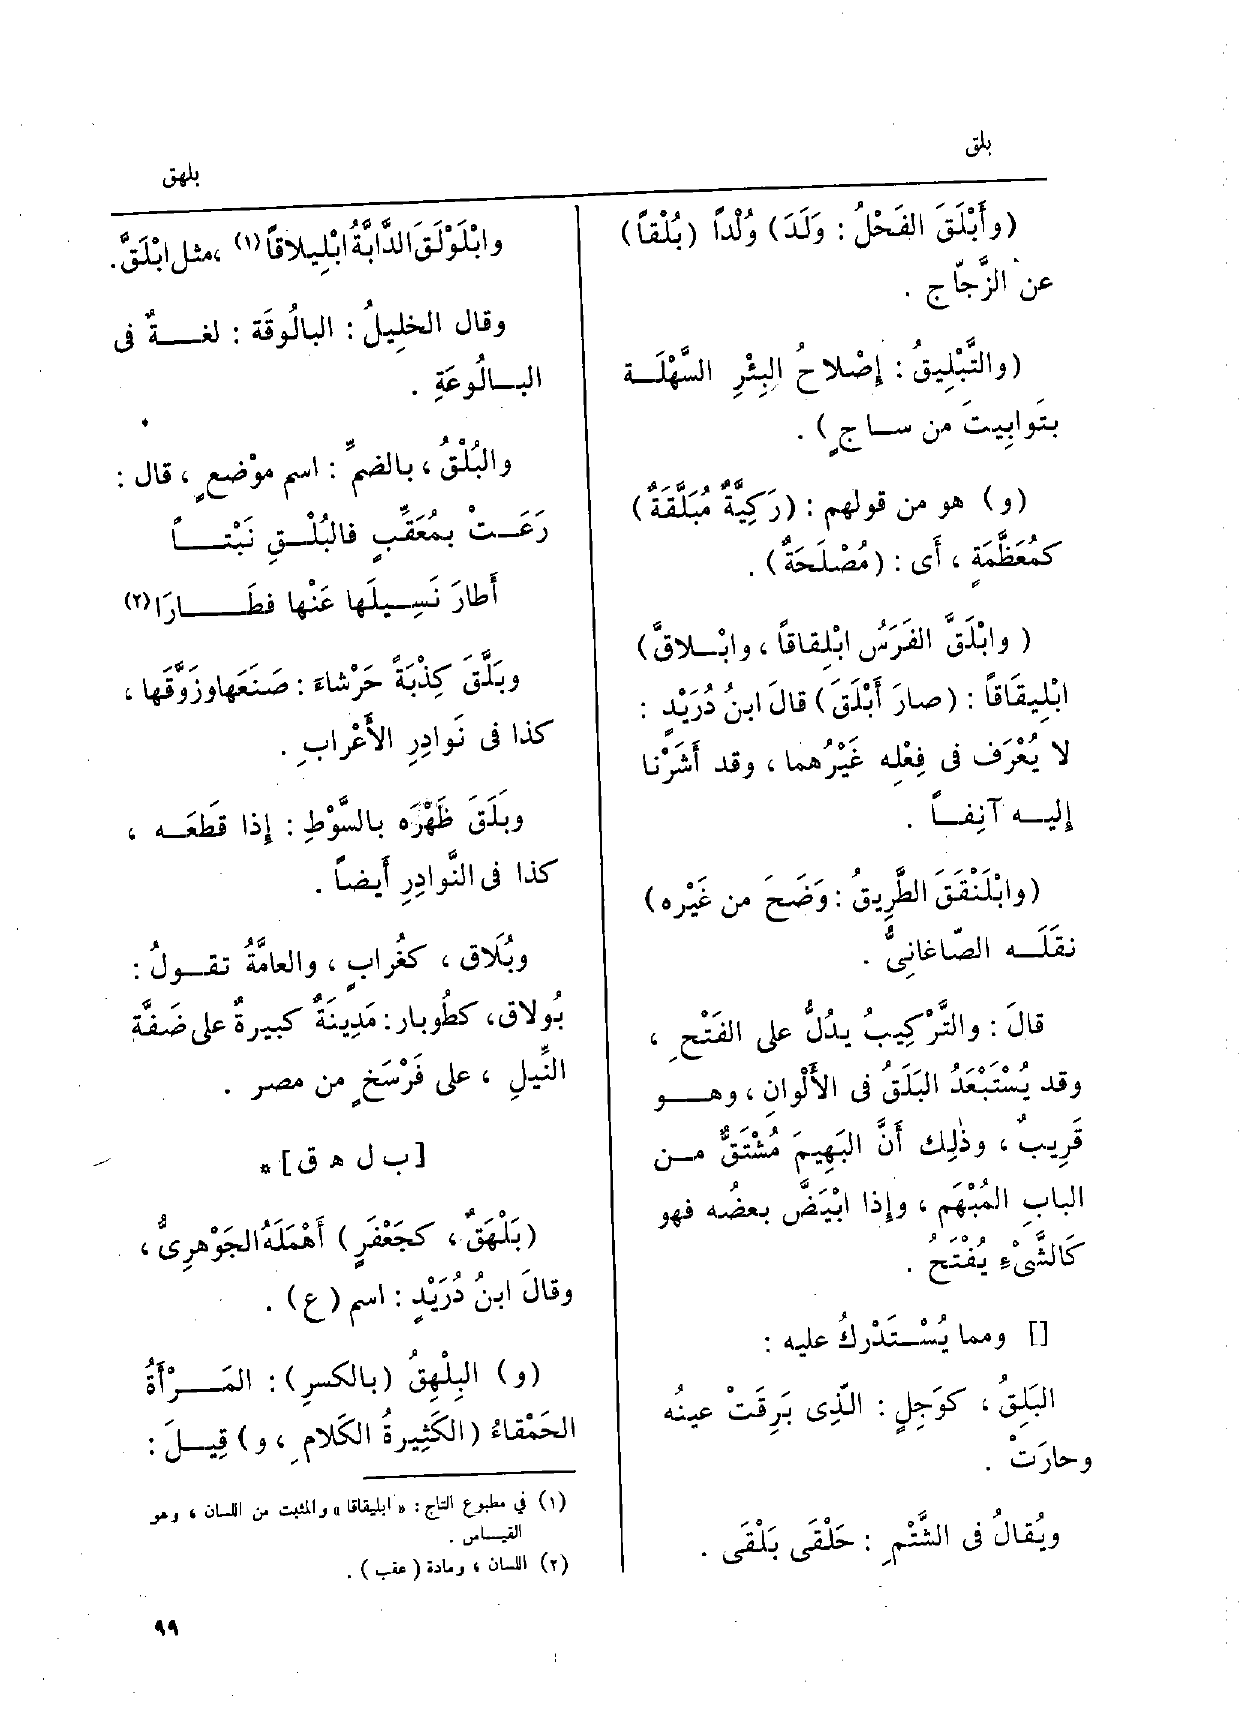 بلق
بلهق
(وأَبْلَقَ الفَحْلُ : وَلَدَ) وُلْداً (بُلْقاً)
عن الزَّجّاج .
(والتَّبْلِيقُ : إِصْلاحُ البِئْرِ السَّهْلَـــة
بتَوابِيتَ من ســاجٍ) .
(و) هو من قولهم : (رَكِيَّةٌ مُبَلَّقَةٌ)
كمُعَظَّمَةٍ ، أَى : (مُصْلَحَةٌ) .
( وابْلَقَّ الفَرَسُ ابْلِقاقاً ، وابْــلاقَّ)
ابْلِيقَاقاً : (صارَ أَبْلَقَ) قالَ ابنُ دُرَيْدٍ :
لا يُعْرَف فى فِعْلِه غَيْرُهما ، وقد أَشَرْنا
إِليــه آنِفــاً .
(وابْلَنْقَقَ الطَّرِيقُ : وَضَحَ من غَيْرِه)
نقَلَــه الصّاغانِىُّ .
قالَ : والتَّرْكِيبُ يدُلُّ على الفَتْحِ ،
وقد يُسْتَبْعَدُ البَلَقُ فى الأَلْوانِ ، وهــو
قَرِيبٌ ، وذٰلِك أَنَّ البَهِيمَ مُشْتَقٌّ مــن
البابِ المُبْهَمِ ، وإِذا ابْيَضَّ بعضُه فهو
كَالشَّىْءِ يُفْتَحُ .
[] ومما يُسْــتَدْركُ عليه :
البَلِقُ ، كوَجِلٍ : الَّذِى بَرِقَتْ عينُه
وحارَتْ .
ويُقالُ فى الشَّتْمِ : حَلْقَى بَلْقَى .
وابْلَوْلَقَ الدَّابَّةُ ابْلِيلاقاً(١) ،مثل ابْلَقَّ.
وقال الخلِيلُ : البالُوقَة : لغـــةٌ فى
البــالُوعَةِ .
والبُلْقُ ، بالضمِّ : اسم موْضعٍ ، قال :
رَعَــتْ بمُعَقَّبٍ فالبُلْــقِ نَبْتــــاً
أَطارَ نَسِــيلَها عَنْها فطَــــارَا(٢)
وبَلَّقَ كِذْبَةً حَرْشاءَ : صَنَعَها وزَوَّقَها ،
كذا فى نَوادِرِ الأَعْرابِ .
وبَلَقَ ظَهْرَه بالسَّوْطِ : إِذا قطَعَــه ،
كذا فى النَّوادِرِ أَيضاً .
وبُلَاق ، كغُرابٍ ، والعامَّةُ تقــولُ :
بُولاق، كطُوبار : مَدِينَةٌ كبيرةٌ على ضَفَّةِ
النِّيلِ ، على فَرْسَخٍ من مصر .
[ ب ل ه ق ] *
(بَلْهَقٌ ، كجَعْفَرٍ) أَهْمَلَهُ الجَوْهرِىُّ ،
وقالَ ابنُ دُرَيْدٍ : اسم (ع) .
(و) البِلْهِقُ (بالكسرِ) : المَـــرْأَةُ
الحَمْقاءُ (الكَثِيرةُ الكَلامِ ، و) قِيــلَ :
(١) في مطبوع التاج : « ابليقاقا » والمثبت من اللسان ، وهو
القيــاس .
(٢) اللسان ، ومادة ( عقب ) .
٩٩